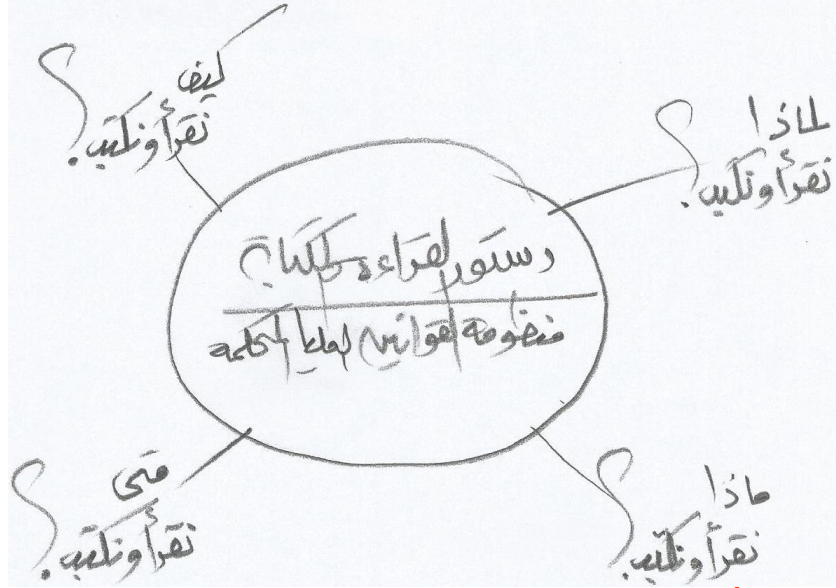 كيف
نقرأ ونكتب؟
لماذا
نقرأ ونكتب؟
دستور القراءة والكتابة
منظومة القوانين العليا الحاكمة
متى
نقرأ ونكتب؟
ماذا
نقرأ ونكتب؟